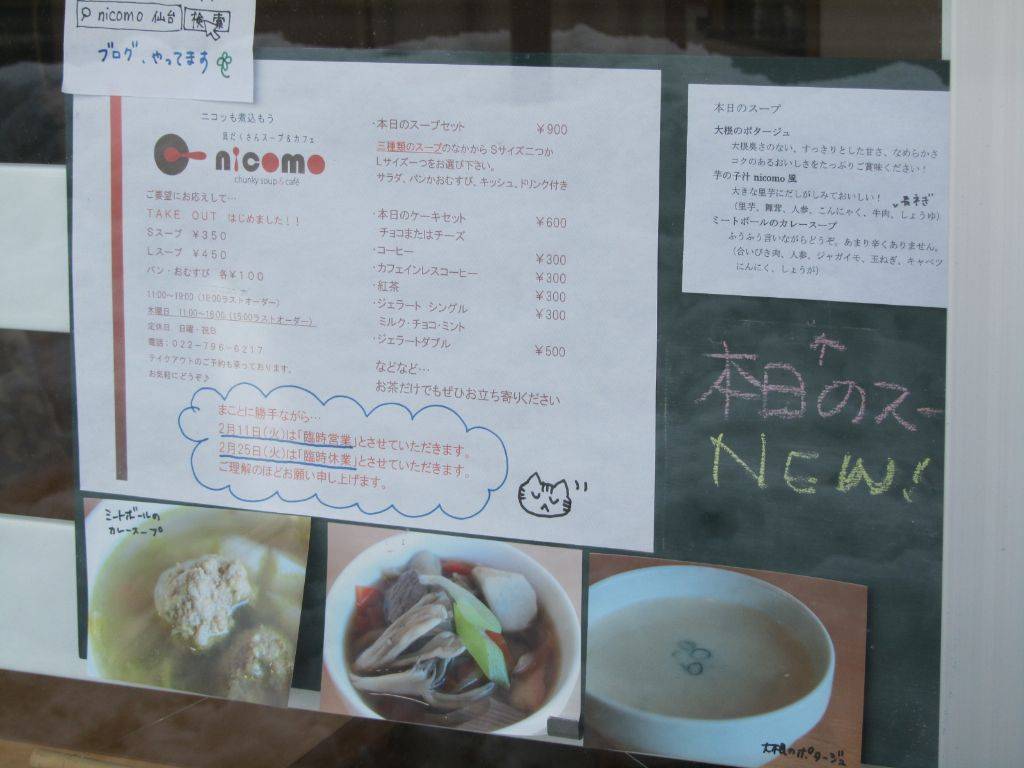 nicomo 仙台 検索
ブログ、やってます
ニコッも煮込もう
具だくさんスープ&カフェ
nicomo
chunky soup & café
ご要望にお応えして…
TAKE OUT はじめました！！
Sスープ ¥350
Lスープ ¥450
パン・おむすび 各¥100
11:00～19:00 (18:00ラストオーダー)
木曜日 11:00～16:00 (15:00ラストオーダー)
定休日 日曜・祝日
電話：022-796-6217
テイクアウトのご予約も承っております。
お気軽にどうぞ♪
・本日のスープセット ¥900
三種類のスープのなかから Sサイズ二つか
Lサイズ一つをお選び下さい。
サラダ、パンかおむすび、キッシュ、ドリンク付き
・本日のケーキセット ¥600
チョコまたはチーズ
・コーヒー ¥300
・カフェインレスコーヒー ¥300
・紅茶 ¥300
・ジェラート シングル ¥300
ミルク・チョコ・ミント
・ジェラートダブル ¥500
などなど…
お茶だけでもぜひお立ち寄りください
まことに勝手ながら…
2月11日(火)は「臨時営業」とさせていただきます。
2月25日(火)は「臨時休業」とさせていただきます。
ご理解のほどお願い申し上げます。
本日のスープ
大根のポタージュ
大根臭さのない、すっきりとした甘さ、なめらかさ
コクのあるおいしさをたっぷりご賞味ください！
芋の子汁 nicomo 風
大きな里芋にだしがしみておいしい！ 長ネギ
(里芋、舞茸、人参、こんにゃく、牛肉、しょうゆ)
ミートボールのカレースープ
ふうふう言いながらどうぞ、あまり辛くありません。
(合いびき肉、人参、ジャガイモ、玉ねぎ、キャベツ
にんにく、しょうが)
↑
本日のスー
NEW!
ミートボールの
カレースープ
大根のポタージュ